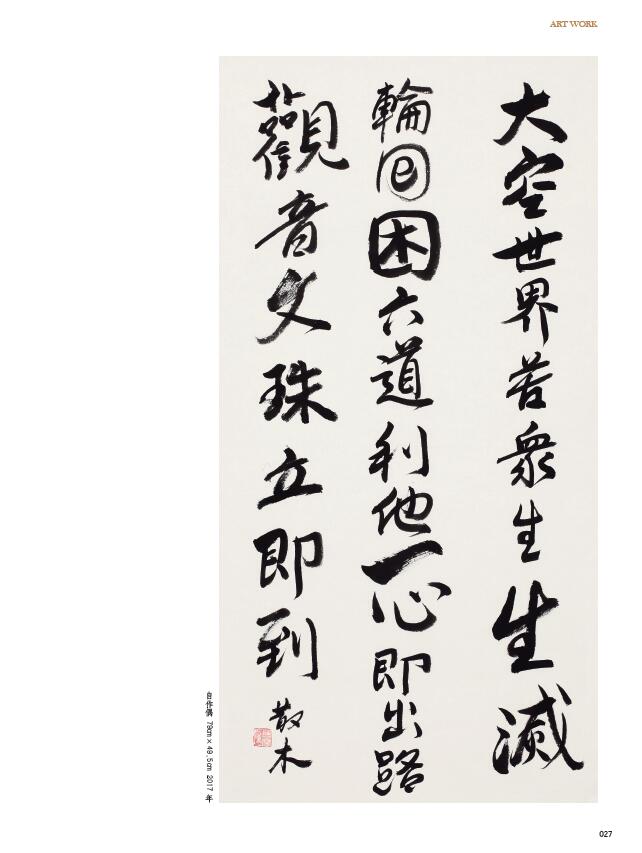 ART WORK
大空世界苦衆生生滅
輪回困六道利他一心即出路
觀音文珠立即到
散木
自作偈 79cm×49.5cm 2017年
027